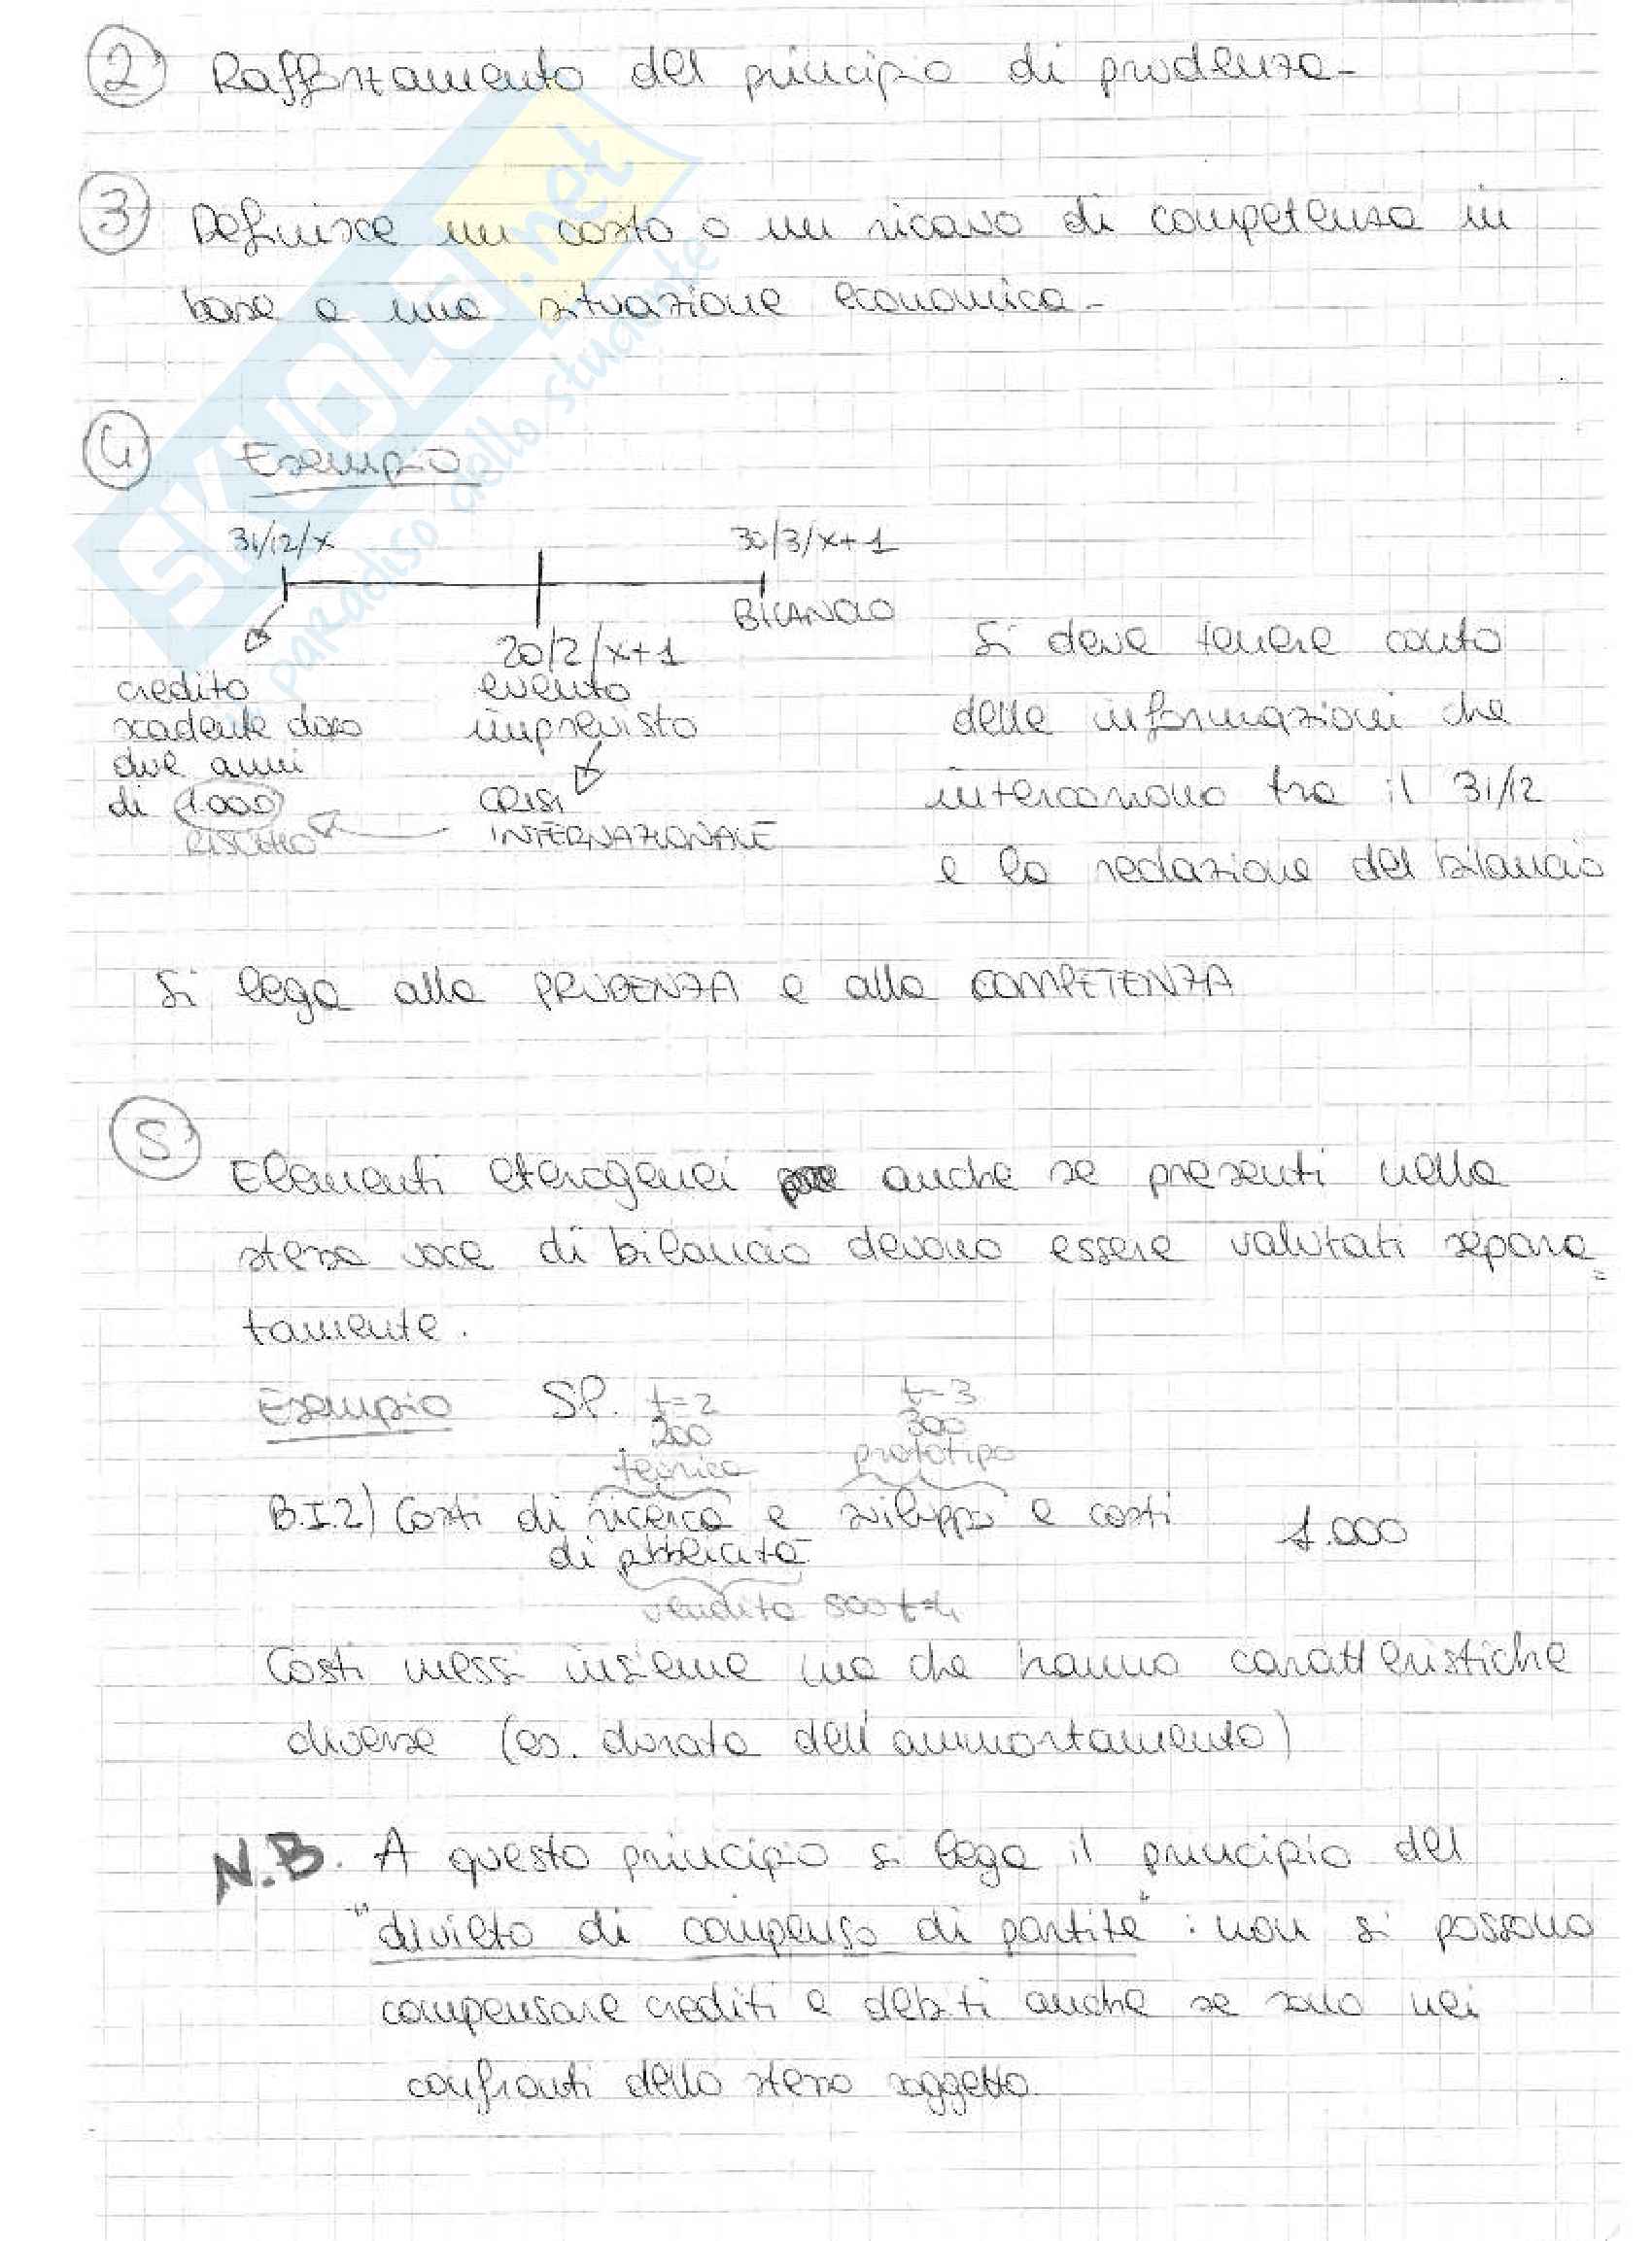 2 Rafforzamento del principio di prudenza-
3 Definisce un costo o un ricavo di competenza in
base a una situazione economica-
4 Esempio
31/12/x 30/3/x+1
BILANCIO
20/2/x+1
credito evento
scadente dopo imprevisto
due anni
di 1.000 CRISI
RISCHIO INTERNAZIONALE
Si deve tenere conto
delle informazioni che
intercorrono tra il 31/12
e la redazione del bilancio
Si lega alla PRUDENZA e alla COMPETENZA
5 Elementi eterogenei anche se presenti nella
stessa voce di bilancio devono essere valutati separa=
tamente.
Esempio S.P. t=2 t=3
200 300
teorica prototipo
B.I.2) Costi di ricerca e sviluppo e costi 1.000
di pubblicità
vendita 500 t=4
Costi messi insieme ma che hanno caratteristiche
diverse (es. durata dell'ammortamento)
N.B. A questo principio si lega il principio del
"divieto di compenso di partite": non si possono
compensare crediti e debiti anche se sono nei
confronti dello stesso soggetto.
SKUOLA.net
paradiso dello studente